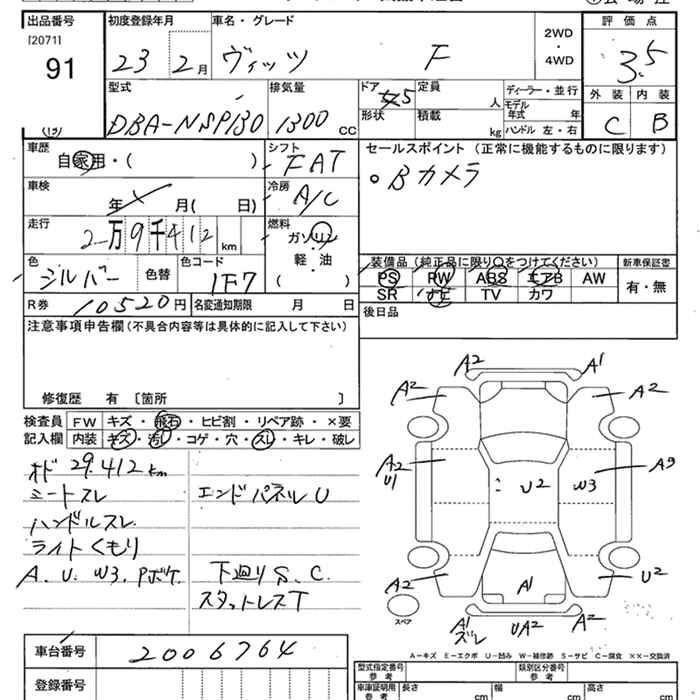 出品番号 初度登録年月 車名・グレード 評価点
[2071]
91 23 2月 ヴィッツ F 2WD・4WD 3.5
型式 排気量 ドア 5 定員 人 ディーラー・並行 外装 内装
モデル年式 年
DBA-NSP130 1300cc 形状 積載 kg ハンドル 左・右 C B
車歴 シフト セールスポイント(正常に機能するものに限ります)
自家用・( ) FAT
○Bカメラ
車検 年 月( 日) 冷房 A/C
走行 2万9千412km 燃料 ガソリン・軽・油 ( )
装備品(純正品に限り○をつけてください) 新車保証書
色 シルバー 色替 色コード 1F7
PS PW ABS エアB AW 有・無
SR ナビ TV カワ
R券 10520円 名変通知期限 月 日
後日品
注意事項申告欄(不具合内容等は具体的に記入して下さい)
修復歴 有 〔箇所 〕
検査員 FW キズ・飛石・ヒビ割・リペア跡・×要
記入欄 内装 キズ・汚し・コゲ・穴・スレ・キレ・破レ
オド 29.412km
シートスレ エンドパネルU
ハンドルスレ
ライトくもり
A.U.W3.Pポケ 下廻りS.C.
スタットレスT
A2 A1
A2 A2
A2 U1 U2 W3 A3
A2 A1 U2
スペア A1 ズレ UA2 A2
A-キズ E-エクボ U-凹み W-補修跡 S-サビ C-腐食 ××-交換済
車台番号 2006764
型式指定番号 参考 類別区分番号 参考
登録番号
車庫証明用 参考 長さ cm 幅 cm 高さ cm